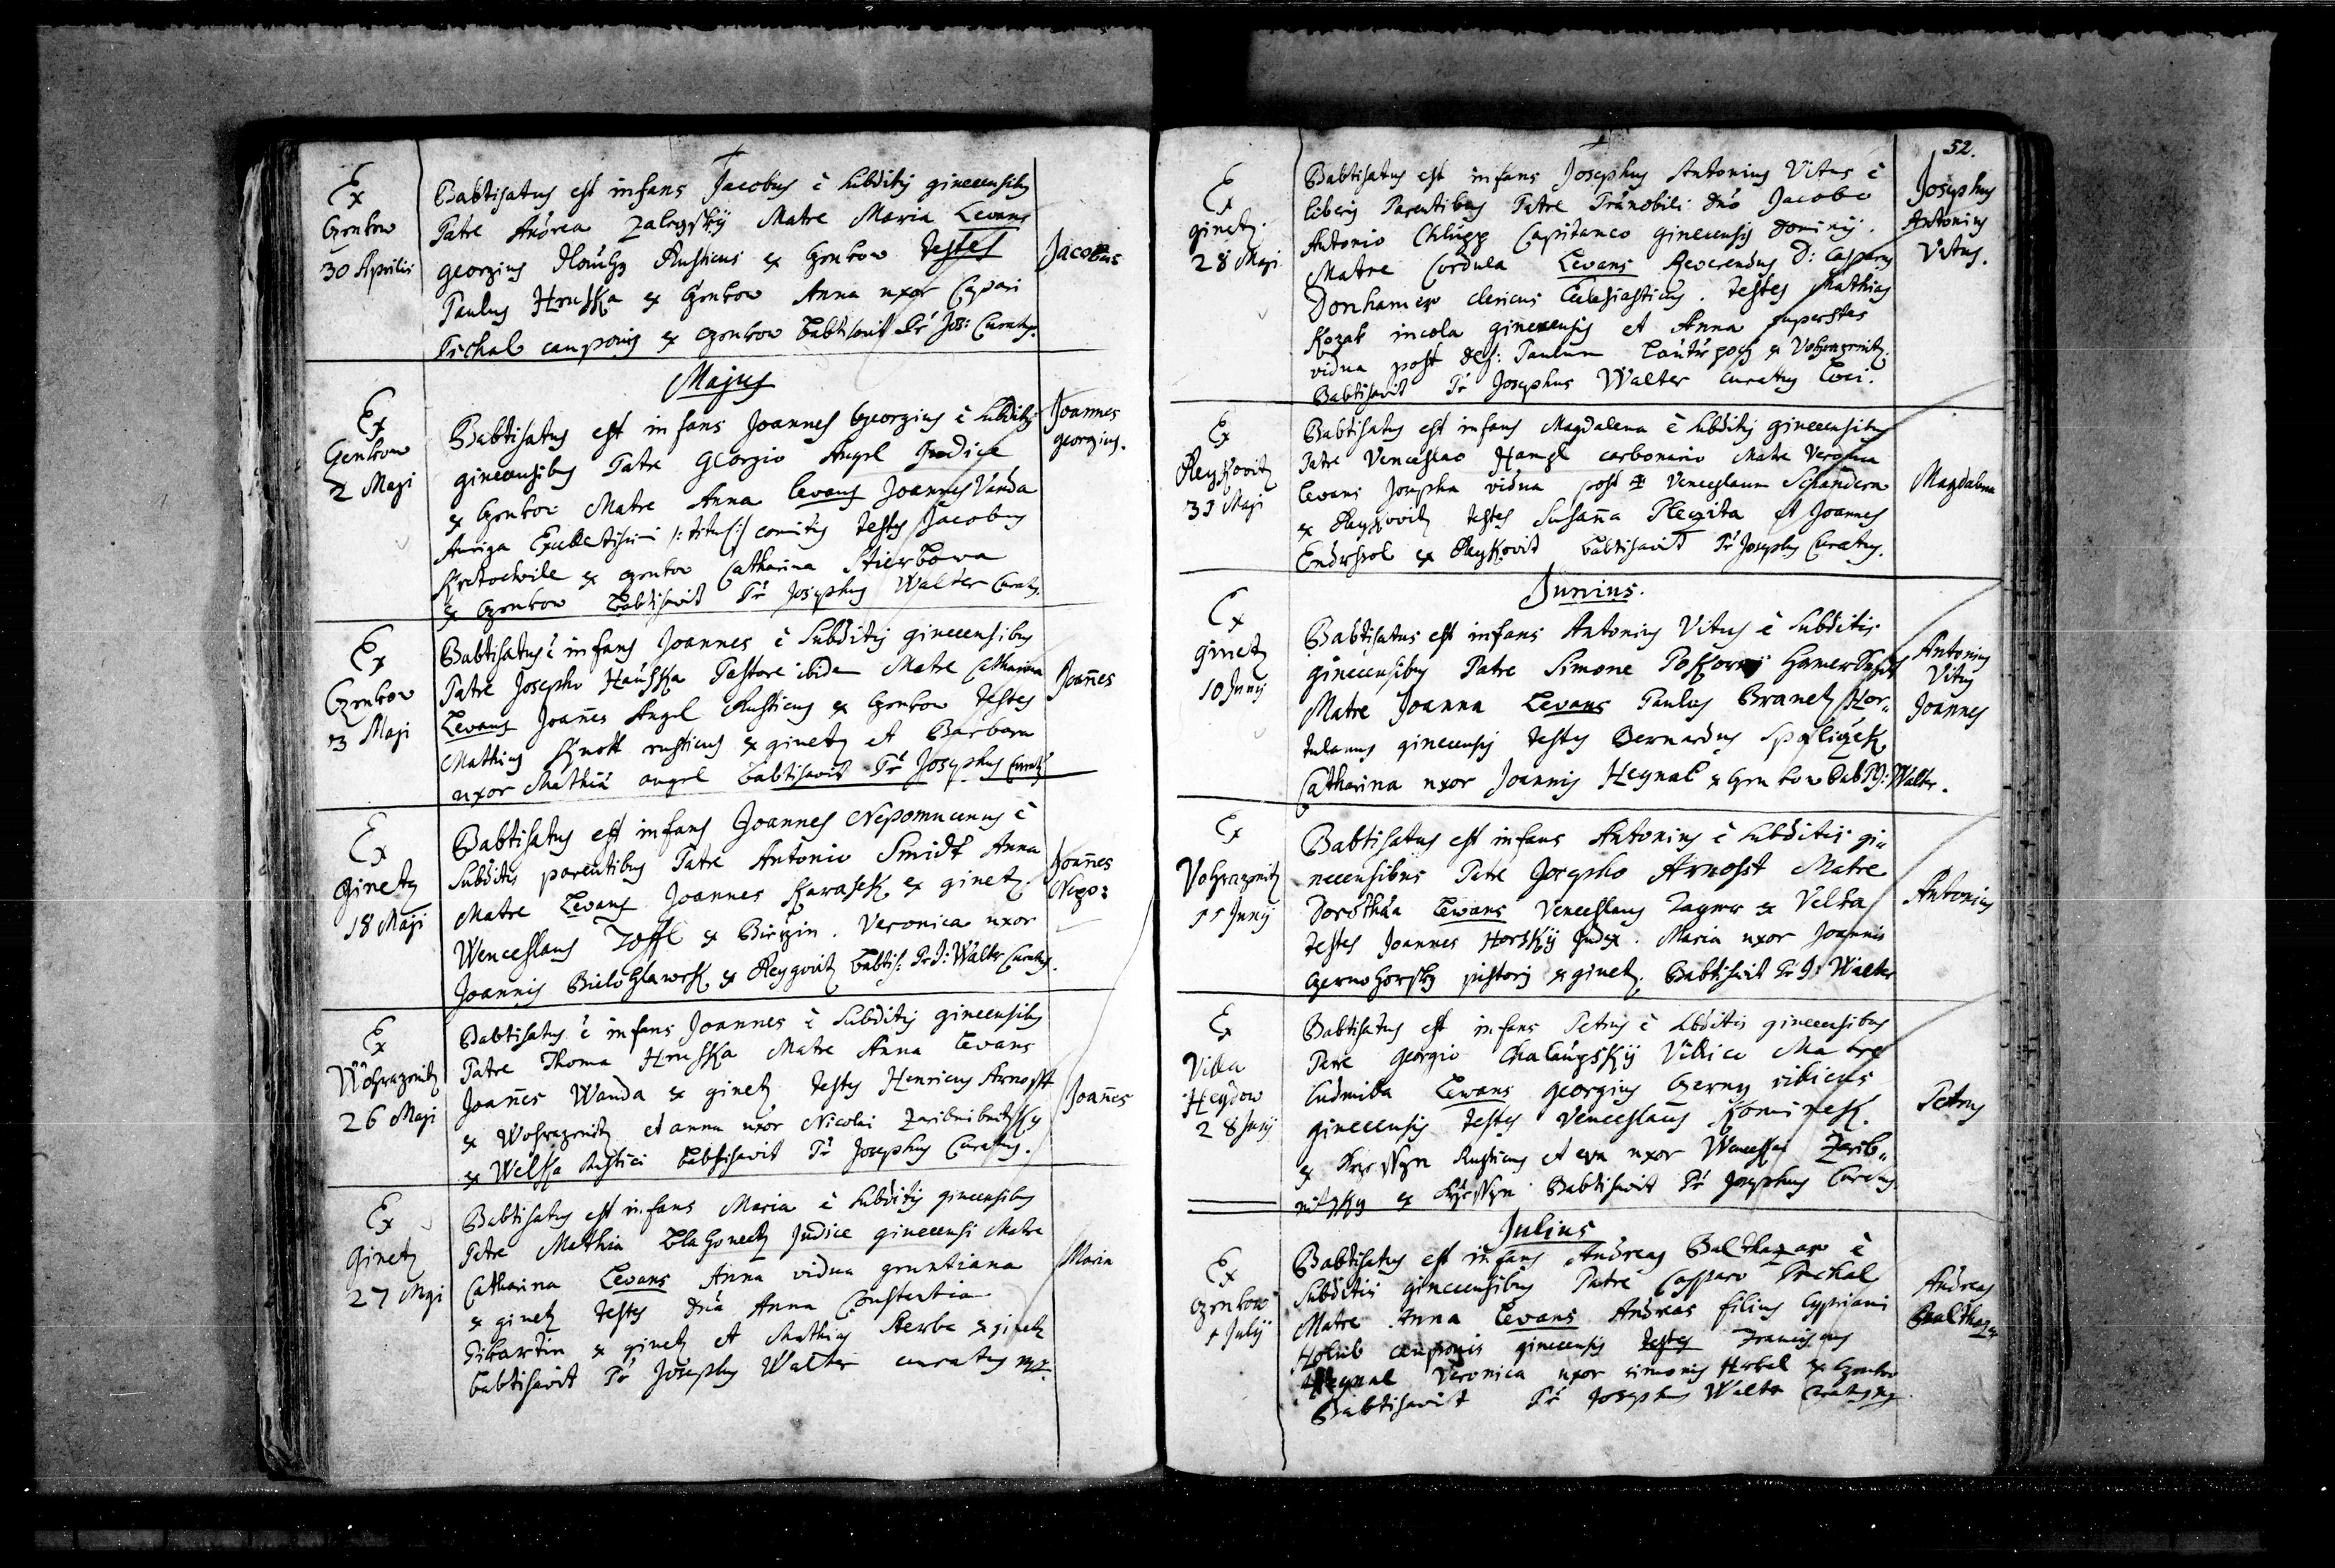 Ex
Czenkow
30 Aprilis
Babtisatus est infans Jacobus è subditis ginecensibus
Patre Andrea Zalezskÿ Matre Maria Levans
georgius Rusticus ex Czenkow testes
Paulus Hruska ex Czenkow Anna uxor Caspari
Prchal cauponis ex Czenkow babtisavit Pr Jos: Curatus.
Jacobus
Majus
Ex
Czenkow
2 Maji
Babtisatus est infans Joannes Georgius è subditis
ginecensibus Patre Georgio Angel Judice
ex Czenkow Matre Anna levans Joannes Vanda
Auriga Excellentissimi /: titul :/ comitis testes Jacobus
Krotochvile ex Czenkow Catharina Stierbowa
ex Czenkow babtisavit Pr Josephus Walter Curatus.
Joannes
georgius.
Ex
Czenkow
3 Maji
Babtisatus è infans Joannes è Subditis ginecensibus
Patre Josepho Hauska Pastore ibidem Matre Catharina
Levans Joañes Angel Rusticus ex Czenkow testes
Mathius Knott rusticus ex ginetz et Barbara
uxor Mathiä angel babtisavit Pr Josephus Curatus
Joañes
Ex
Ginetz
18 Maji
Babtisatus est infans Joannes Nepomucenus è
Subditis parentibus Patre Antonio Smidt Anna
Matre Levans Joannes Karasek ex ginetz
Wenceslaus Toffl ex Birzin. Veronica uxor
Joannis Bielohlawek ex Reygovitz babtis: Pr J: Walter Curatus.
Joañes
Nepo:
Ex
Wohrazenitz
26 Maji
Babtisatus è infans Joannes è Subditis ginecensibus
Patre Thoma Hruska Matre Anna Levans
Joañes Wanda ex ginetz testes Henricus Arnosst
ex Wohrazenitz et anna uxor Nicolai Zaribnitzky
ex Welka Rustici babtisavit Pr Josephus Curatus.
Joañes
Ex
Ginetz
27 Maji
Babtisatus est infans Maria è Subditis ginecensibus
Patre Mathia Blahonetz Judice ginecensi Matre
Catharina Levans Anna vidua
ex ginetz testes Dña Anna Constantia
ex ginetz et Mathias Sterba ex ginetz
babtisavit Pr Josephus Walter curatus mp.
Maria
52.
Ex
ginetz
28 Maji
Babtisatus est infans Josephus Antonius Vitus è
liberis Parentibus Patre Pränobili Dño Jacobo
Antonio Chlupp Capitaneo ginecensis Dominij.
Matre Cordula Levans Reverendus D: Casparus
Donhamer clericus Ecclesiasticus. testes Mathias
Kozak incola ginecensis et Anna superstes
vidua post def: Paulum ex Vohrazenitz.
Babtisavit Pr Josephus Walter curatus Loci.
Josephus
Antonius
Vitus.
Ex
Reykovitz
31 Maji
Babtisatus est infans Magdalena è Subditis ginecensibus
Patre Venceslao Hampl carbonario Matre Verona
levans Josepha vidua post Venceslaum Schandera
ex Reykovitz testes Susaña et Joannes
ex Reykovitz babtisavit Pr Josephus Curatus.
Magdalena
Junius.
Ex
ginetz
10 Junij
Babtisatus est infans Antonius Vitus è Subditis
ginecensibus Patre Simone Pokorný
Matre Joanna Levans Paulus Branetz Hor„
tulanus ginecensis testes Bernardus
Catharina uxor Joannis Heynal ex Czenkow bab P J: Walter.
Antonius
Vitus
Joannes
Ex
Vohrazenitz
11 Junij
Babtisatus est infans Antonius è Subditis gi„
necensibus Patre Josepho Arnosst Matre
Dorothäa Levans Venceslaus ex Velka
testes Joannes Horskÿ Judex. Maria uxor Joannis
Czernohorsky pistoris ex ginetz. Babtisavit Pr J: Walter
Antonius
Ex
Villa
28 Junij
Babtisatus est infans Petrus è subditis ginecensibus
Patre Georgio Chalaupskÿ Villico Matre
Ludmila Levans georgius Czerny vilicus
ginecensis testes Venceslaus Kominek
ex Rusticus et eva uxor Wenceslai Zarib„
nitzky ex Babtisavit Pr Josephus Curatus.
Petrus
Julius
Ex
Czenkow
1 Julij
Babtisatus est infans Andreas Balthazar è
Subditis ginecensibus Patre Casparo Prchal
Matre Anna Levans Andreas filius Cypriani
Holub cauponis ginecensis testes Franciscus
Heynal Veronica uxor simonis ex Czenkow
Babtisavit Pr Josephus Walter curatus mp
Andreas
Balthazar